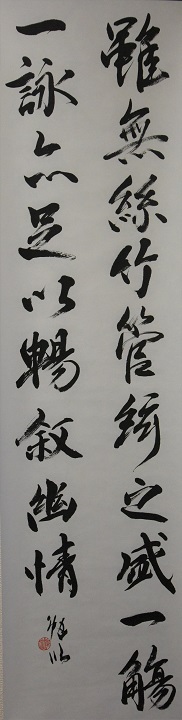 雖無絲竹管絃之盛一觴
一詠亦足以暢敘幽情